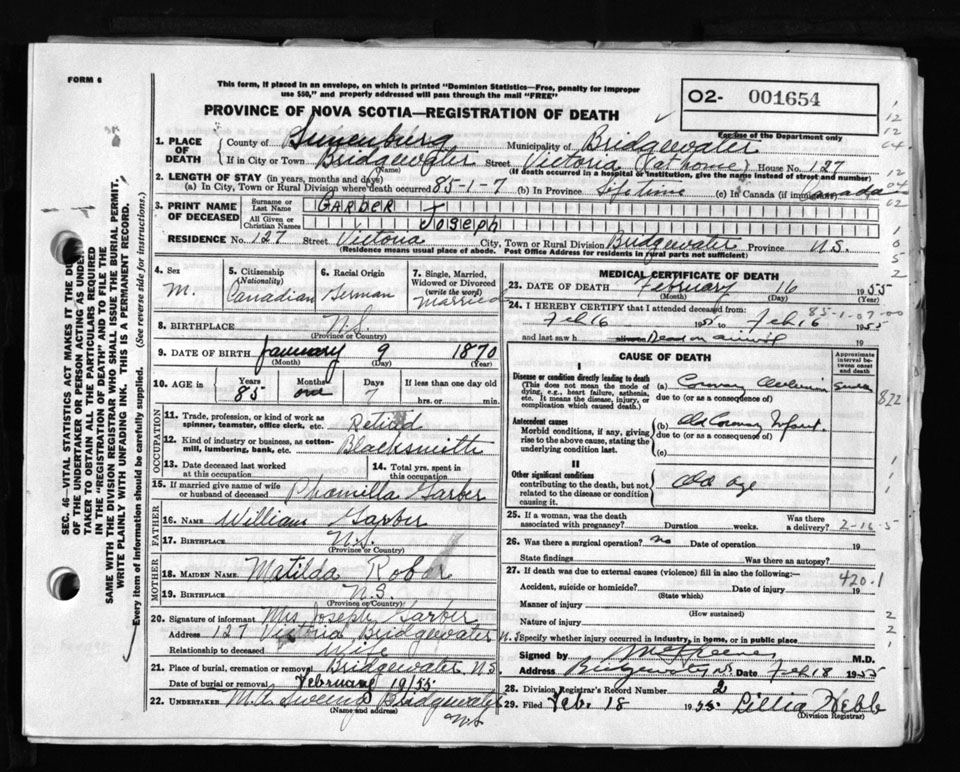 FORM 6
This form, if placed in an envelope, on which is printed "Dominion Statistics—Free, penalty for improper
use $50," and properly addressed will pass through the mail "FREE"
O2- 001654
For use of the Department only
PROVINCE OF NOVA SCOTIA—REGISTRATION OF DEATH
1. PLACE OF DEATH
County of Lunenburg Municipality of Bridgewater
If in City or Town Bridgewater Street Victoria (at home) House No. 127
(Name) (If death occurred in a hospital or institution, give name instead of street and number)
2. LENGTH OF STAY (in years, months and days)
(a) In City, Town or Rural Division where death occurred 85-1-7 (b) In Province Lifetime (c) In Canada (if immigrant) Canada
3. PRINT NAME OF DECEASED
Surname or Last Name GARBER
All Given or Christian Names JOSEPH
RESIDENCE No. 127 Street Victoria City, Town or Rural Division Bridgewater Province N.S.
(Residence means usual place of abode. Post Office Address for residents in rural parts not sufficient)
4. Sex M.
5. Citizenship (Nationality) Canadian
6. Racial Origin German
7. Single, Married, Widowed or Divorced (write the word) Married
8. BIRTHPLACE N.S.
(Province or Country)
9. DATE OF BIRTH January 9 1870
(Month) (Day) (Year)
10. AGE in Years 85 Months one Days 7 If less than one day old
hrs. or min.
OCCUPATION
11. Trade, profession, or kind of work as spinner, teamster, office clerk, etc. Retired
12. Kind of industry or business, as cotton-mill, lumbering, bank, etc. Blacksmith
13. Date deceased last worked at this occupation
14. Total yrs. spent in this occupation
15. If married give name of wife or husband of deceased Phamilla Garber
FATHER
16. NAME William Garber
17. BIRTHPLACE N.S.
(Province or Country)
MOTHER
18. MAIDEN NAME Matilda Robar
19. BIRTHPLACE N.S.
(Province or Country)
20. Signature of informant Mrs Joseph Garber
Address 127 Victoria Bridgewater N.S.
Relationship to deceased Wife
21. Place of burial, cremation or removal Bridgewater N.S.
Date of burial or removal February 19/55
22. UNDERTAKER Bridgewater
(Name and address) N.S
MEDICAL CERTIFICATE OF DEATH
23. DATE OF DEATH February 16 1955
(Month) (Day) (Year)
24. I HEREBY CERTIFY that I attended deceased from: 85-1-07-00
Feb 16 1955 to Feb 16 1955
and last saw h alive on Dead on arrival
CAUSE OF DEATH
Approximate interval between onset and death
I
Disease or condition directly leading to death
(This does not mean the mode of dying, e.g., heart failure, asthenia, etc. It means the disease, injury, or complication which caused death.)
(a) Coronary
due to (or as a consequence of)
822
Antecedent causes
Morbid conditions, if any, giving rise to the above cause, stating the underlying condition last.
(b) Old Coronary Infarct
due to (or as a consequence of)
(c)
II
Other significant conditions
contributing to the death, but not related to the disease or condition causing it.
Old age
25. If a woman, was the death associated with pregnancy? Duration weeks. Was there a delivery? 2-16-5
26. Was there a surgical operation? no Date of operation 19
State findings Was there an autopsy?
27. If death was due to external causes (violence) fill in also the following:— 420.1
Accident, suicide or homicide? Date of injury 19
(State which)
Manner of injury
(How sustained)
Nature of injury
Specify whether injury occurred in industry, in home, or in public place
Signed by M.D.
Address Bridgewater NS Date Feb 18 1955
28. Division Registrar's Record Number 2
29. Filed Feb. 18 1955 Lillia Webb
(Division Registrar)
SEC. 46—VITAL STATISTICS ACT MAKES IT THE DUTY
OF THE UNDERTAKER OR PERSON ACTING AS UNDER-
TAKER TO OBTAIN ALL THE PARTICULARS REQUIRED
IN THE "REGISTRATION OF DEATH" AND TO FILE THE
SAME WITH THE DIVISION REGISTRAR WHO SHALL ISSUE THE BURIAL PERMIT.
WRITE PLAINLY WITH UNFADING INK. THIS IS A PERMANENT RECORD.
Every item of information should be carefully supplied. (See reverse side for instructions.)